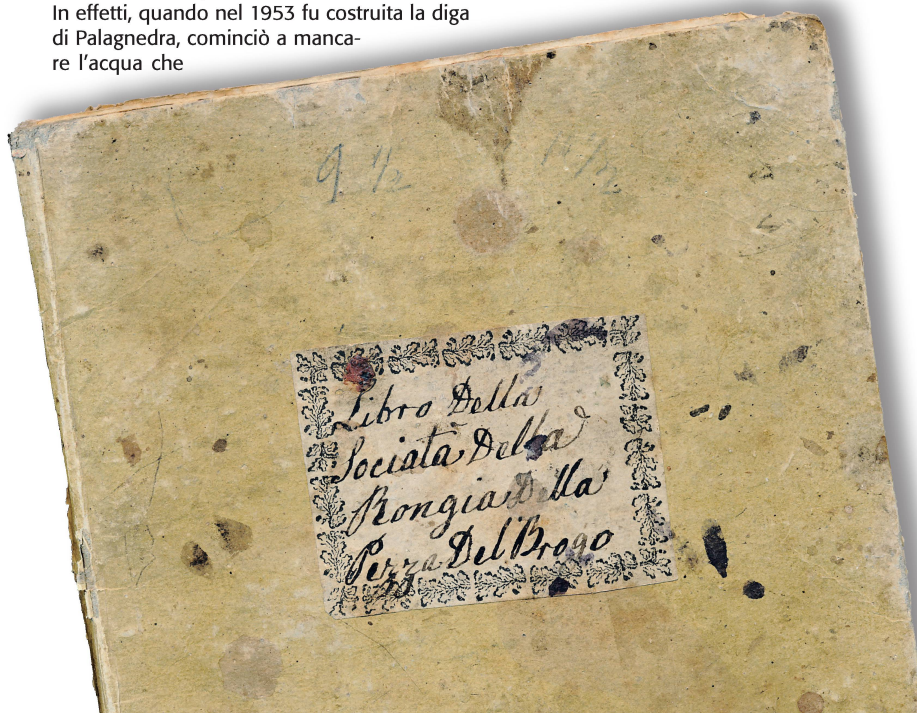 In effetti, quando nel 1953 fu costruita la diga
di Palagnedra, cominciò a manca-
re l'acqua che
9 1/2
Libro Della
Sociatà Della
Rongia Della
Pezza Del Brogo